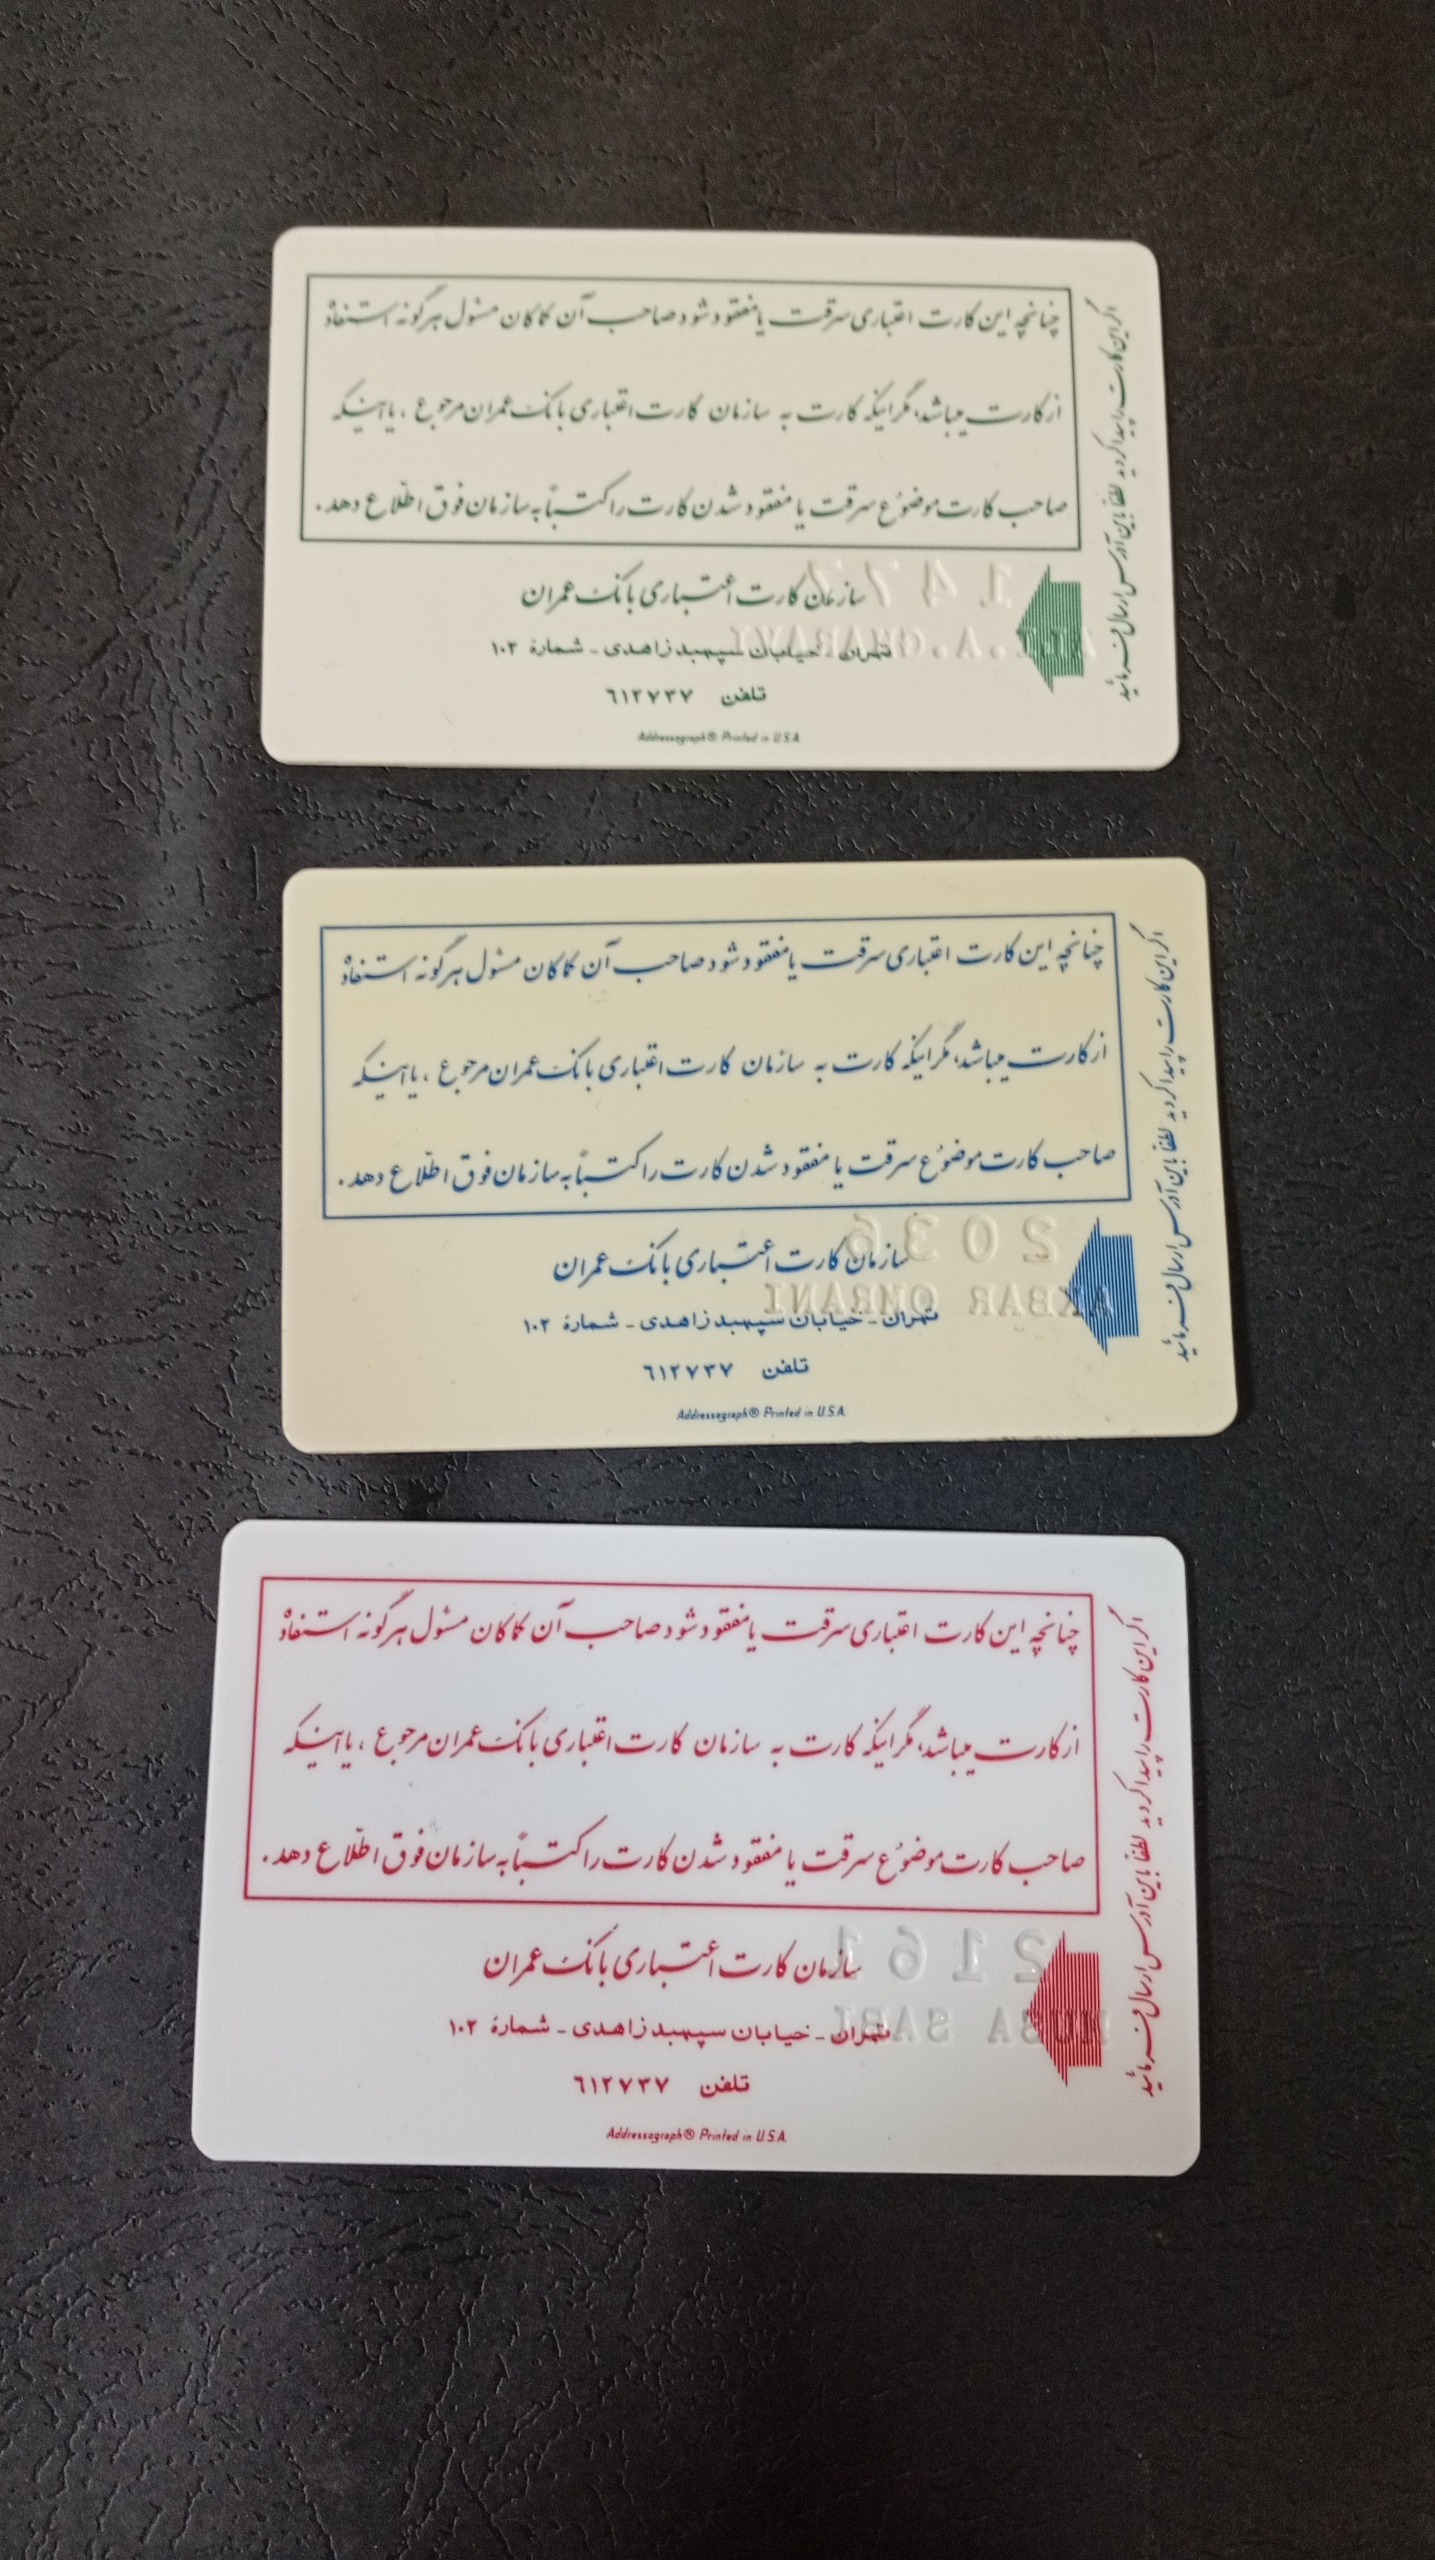 چنانچه این کارت اعتباری سرقت یا مفقود شود صاحب آن کماکان مسئول هرگونه استفاده
از کارت میباشد، مگر اینکه کارت به سازمان کارت اعتباری بانک عمران مرجوع ، یا اینکه
صاحب کارت موضوع سرقت یا مفقود شدن کارت را کتباً به سازمان فوق اطّلاع دهد.
سازمان کارت اعتباری بانک عمران
تهران - خیابان سپهبد زاهدی - شمارهٔ ۱۰۲
تلفن ۶۱۲۷۳۷
Addressograph® Printed in U.S.A.
اگر این کارت را پیدا کردید لطفا باین آدرس ارسال فرمائید
147
چنانچه این کارت اعتباری سرقت یا مفقود شود صاحب آن کماکان مسئول هرگونه استفاده
از کارت میباشد، مگر اینکه کارت به سازمان کارت اعتباری بانک عمران مرجوع ، یا اینکه
صاحب کارت موضوع سرقت یا مفقود شدن کارت را کتباً به سازمان فوق اطّلاع دهد.
سازمان کارت اعتباری بانک عمران
تهران - خیابان سپهبد زاهدی - شمارهٔ ۱۰۲
تلفن ۶۱۲۷۳۷
Addressograph® Printed in U.S.A.
اگر این کارت را پیدا کردید لطفا باین آدرس ارسال فرمائید
2036
AKBAR OMRANI
چنانچه این کارت اعتباری سرقت یا مفقود شود صاحب آن کماکان مسئول هرگونه استفاده
از کارت میباشد، مگر اینکه کارت به سازمان کارت اعتباری بانک عمران مرجوع ، یا اینکه
صاحب کارت موضوع سرقت یا مفقود شدن کارت را کتباً به سازمان فوق اطّلاع دهد.
سازمان کارت اعتباری بانک عمران
تهران - خیابان سپهبد زاهدی - شمارهٔ ۱۰۲
تلفن ۶۱۲۷۳۷
Addressograph® Printed in U.S.A.
اگر این کارت را پیدا کردید لطفا باین آدرس ارسال فرمائید
2161
SABI